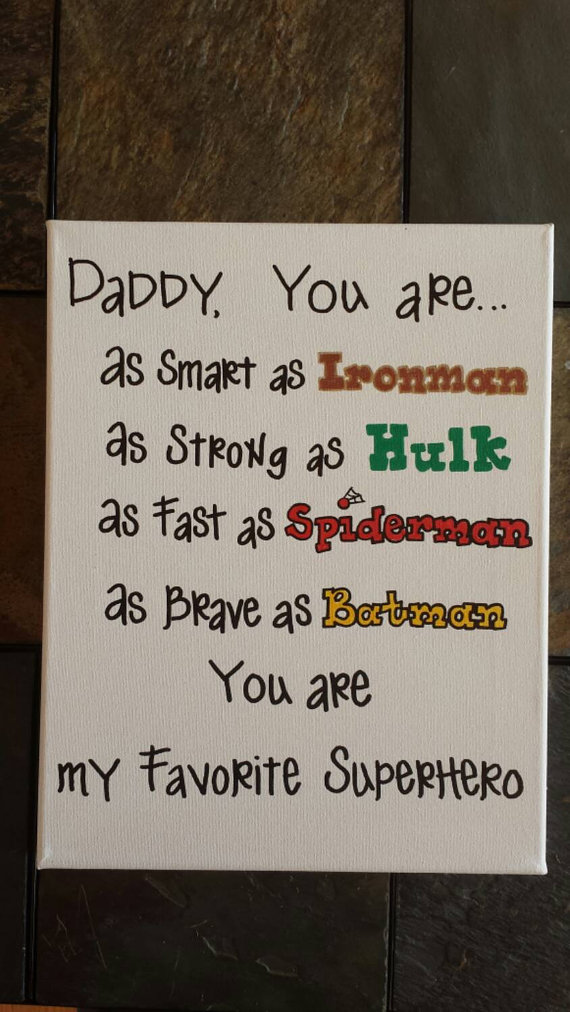 Daddy, You are...
as Smart as Ironman
as Strong as Hulk
as Fast as Spiderman
as Brave as Batman
You are
my Favorite Superhero